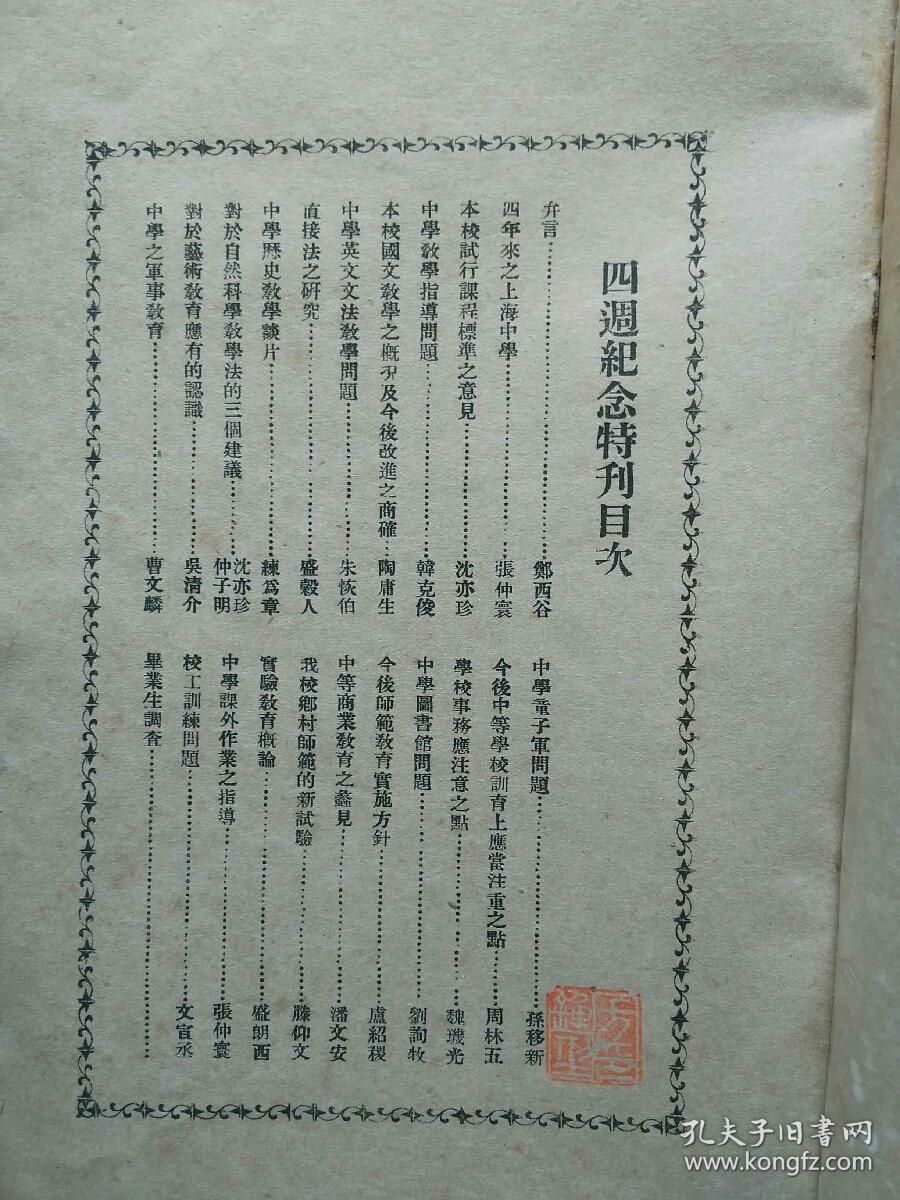 四週紀念特刊目次
弁言…………鄭西谷
四年來之上海中學…………張仲寰
本校試行課程標準之意見…………沈亦珍
中學教學指導問題…………韓克俊
本校國文教學之概況及今後改進之商確…陶庸生
中學英文文法教學問題…………朱恢伯
直接法之研究…………盛穀人
中學歷史教學談片…………練爲章
對於自然科學教學法的三個建議…………沈亦珍 仲子明
對於藝術教育應有的認識…………吳清介
中學之軍事教育…………曹文麟
中學童子軍問題…………孫移新
今後中等學校訓育上應當注重之點…………周林五
學校事務應注意之點…………魏璣光
中學圖書館問題…………劉詢牧
今後師範教育實施方針…………盧紹稷
中等商業教育之蠡見…………潘文安
我校鄉村師範的新試驗…………滕仰文
實驗教育概論…………盛朗西
中學課外作業之指導…………張仲寰
校工訓練問題…………文宣丞
畢業生調查…………
孔夫子旧书网
www.kongfz.com